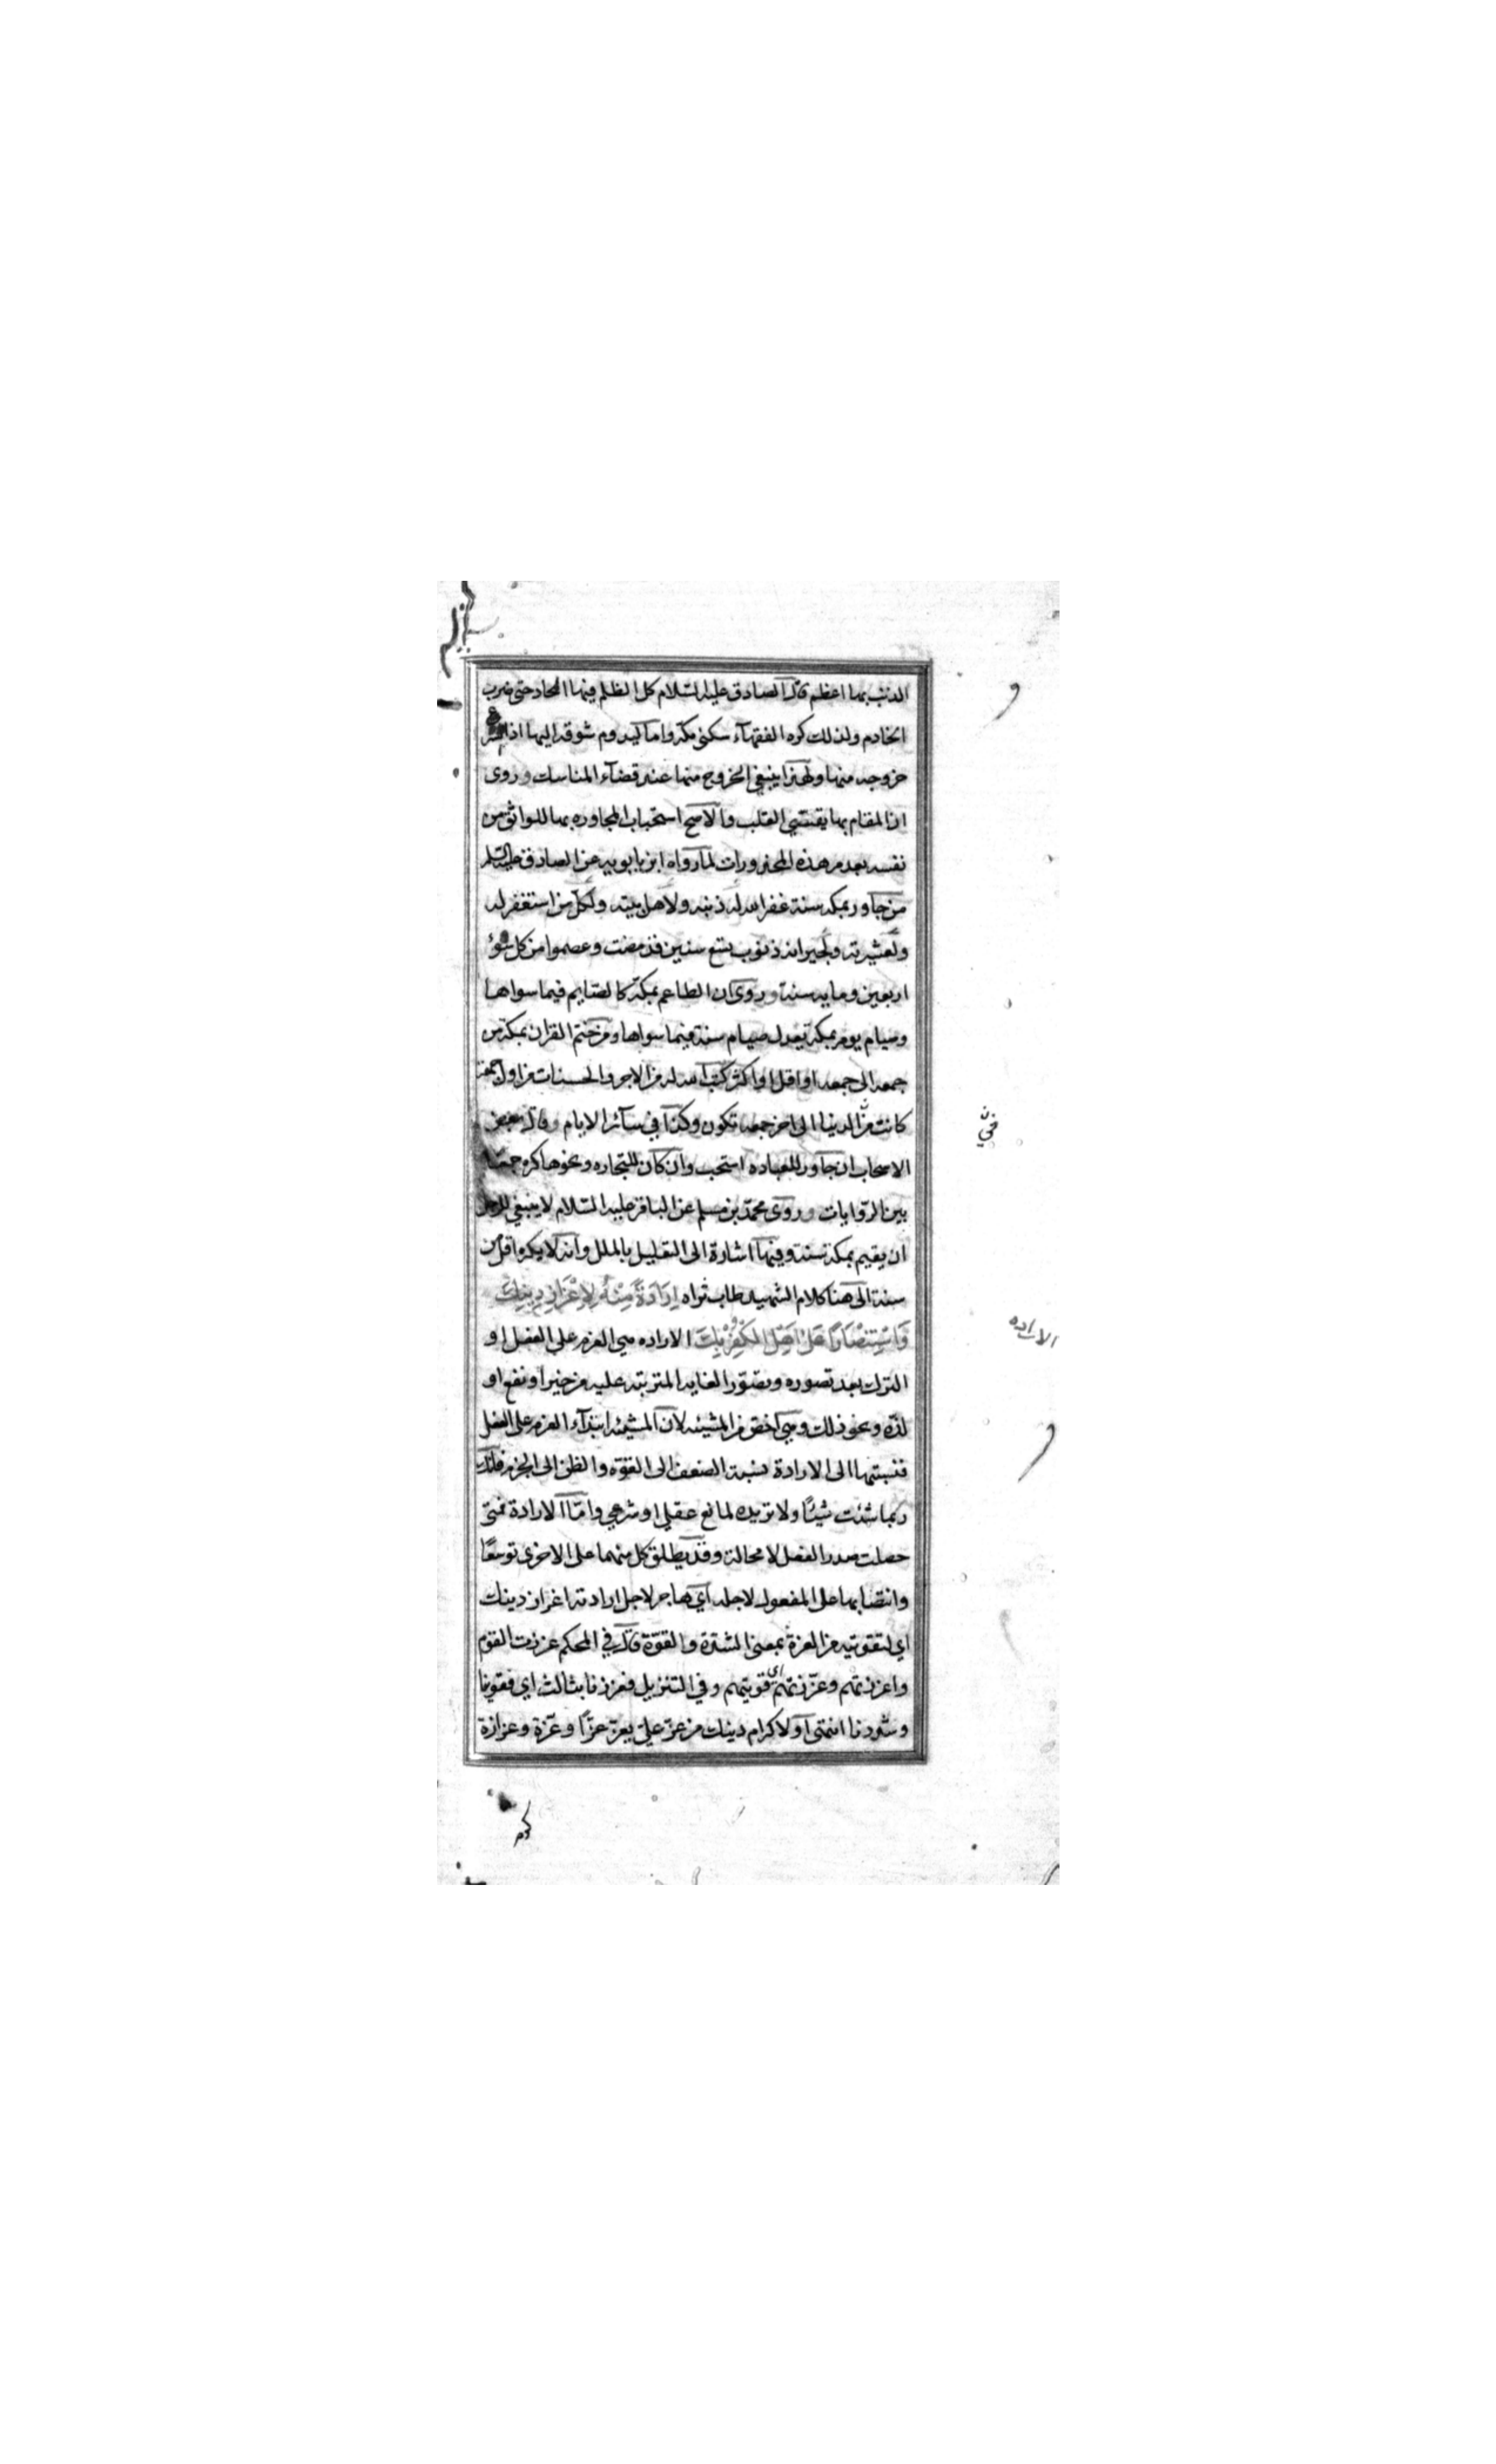 الذنب بها اعظم قال الصادق عليه السلام كل الظلم فيها الحاد حتى ضرب
الخادم ولذلك كره الفقهآء سكنى مكة واما ليدوم شوقه اليها اذا
خروجه منها ولهذا ينبغي الخروج منها عند قضآء المناسك وروى
ان المقام بها يقسي القلب والاصح استحباب المجاوره بها للواثق من
نفسه بعدم هذه المحذورات لما رواه ابن بابويه عن الصادق عليه السلم
من جاور بمكه سنة غفر الله له ذنبه ولاهل بيته ولكل من استغفر له
ولعشيرته ولجيرانه ذنوب تسع سنين قد مضت وعصموا من كل سوء
اربعين ومايه سنة وروى ان الطاعم بمكة كالصايم فيما سواها
وصيام يوم بمكة يعدل صيام سنة فيما سواها ومن ختم القران بمكة من
جمعه الى جمعه او اقل او اكثر كتب الله له من الاجر والحسنات من اول جمعة
كانت من الدنيا الى اخر جمعه تكون وكذا في سآئر الايام وقال بعض
الاصحاب ان جاور للعباده استحب وان كان للتجاره ونحوها كره جمعًا
بين الروايات وروى محمد بن مسلم عن الباقر عليه السلام لا ينبغي للرجل
ان يقيم بمكة سنة وفيها اشارة الى التعليل بالملل وانه لا يكره اقل من
سنة الى هنا كلام الشهيد طاب ثراه اِرَادَةً مِنْهُ لِاِعْزَازِ دِينِكَ
وَاسْتِنْصَارًا عَلى اَهْلِ الكُفْرِ بِكَ الاراده هي العزم على الفعل او
الترك بعد تصوره وتصور الغايه المترتبه عليه من خير او نفع او
لذه ونحو ذلك وهي اخص من المشيئه لان المشيئه ابتدآء العزم على الفعل
فنسبتها الى الارادة نسبة الضعف الى القوه والظن الى الجزم فانك
ربما شئت شيئًا ولا تريده لمانع عقلي او شرعي واما الارادة فمتى
حصلت صدر الفعل لا محالة وقد يطلق كل منهما على الاخرى توسعًا
وانتصابها على المفعول لاجله اي هاجر لاجل ارادته اعزاز دينك
اي لتقويته من العزة بمعنى الشدة والقوة قال في المحكم عززت القوم
واعززتهم وعززتهم اي قويتهم وفي التنزيل فعززنا بثالث اي فقوينا
وشددنا انتهى او لاكرام دينك من عز علي يعز عزًا وعزة وعزازة
في ن
الاراده
كرم